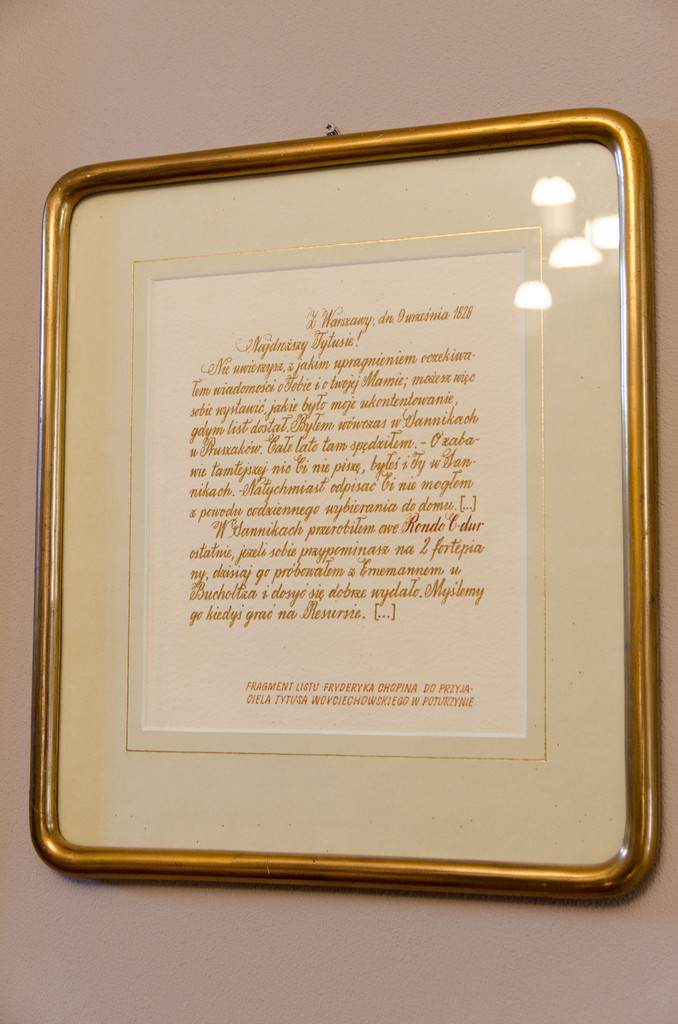 Z Warszawy, dn. 9 września 1828
Najdroższy Tytusie!
Nie uwierzysz, z jakim upragnieniem oczekiwa-
łem wiadomości o Tobie i o twojej Mamie; możesz więc
sobie wystawić, jakie było moje ukontentowanie,
gdym list dostał. Byłem wówczas w Sannikach
u Pruszaków. Całe lato tam spędziłem. - O zaba-
wie tamtejszej nic Ci nie piszę, byłeś i Ty w San-
nikach. - Natychmiast odpisać Ci nie mogłem
z powodu codziennego wybierania do domu. [...]
W Sannikach przerobiłem owe Rondo C-dur
ostatnie, jeżeli sobie przypominasz na 2 fortepia-
ny, dzisiaj go próbowałem z Ernemannem u
Bucholtza i dosyć się dobrze wydało. Myślemy
go kiedyś grać na Resursie. [...]
FRAGMENT LISTU FRYDERYKA CHOPINA DO PRZYJA-
CIELA TYTUSA WOYCIECHOWSKIEGO W POTURZYNIE